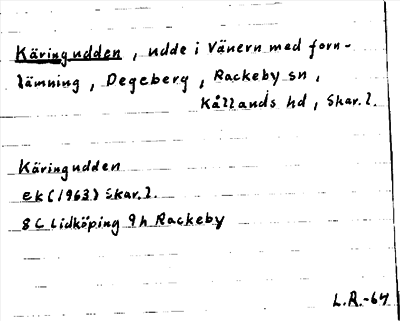 Käringudden, udde i Vänern med forn-
lämning, Degeberg, Rackeby sn,
Kållands hd, Skar. l.
Käringudden
ek (1963) Skar. l.
8C Lidköping 9h Rackeby
L.R.-64